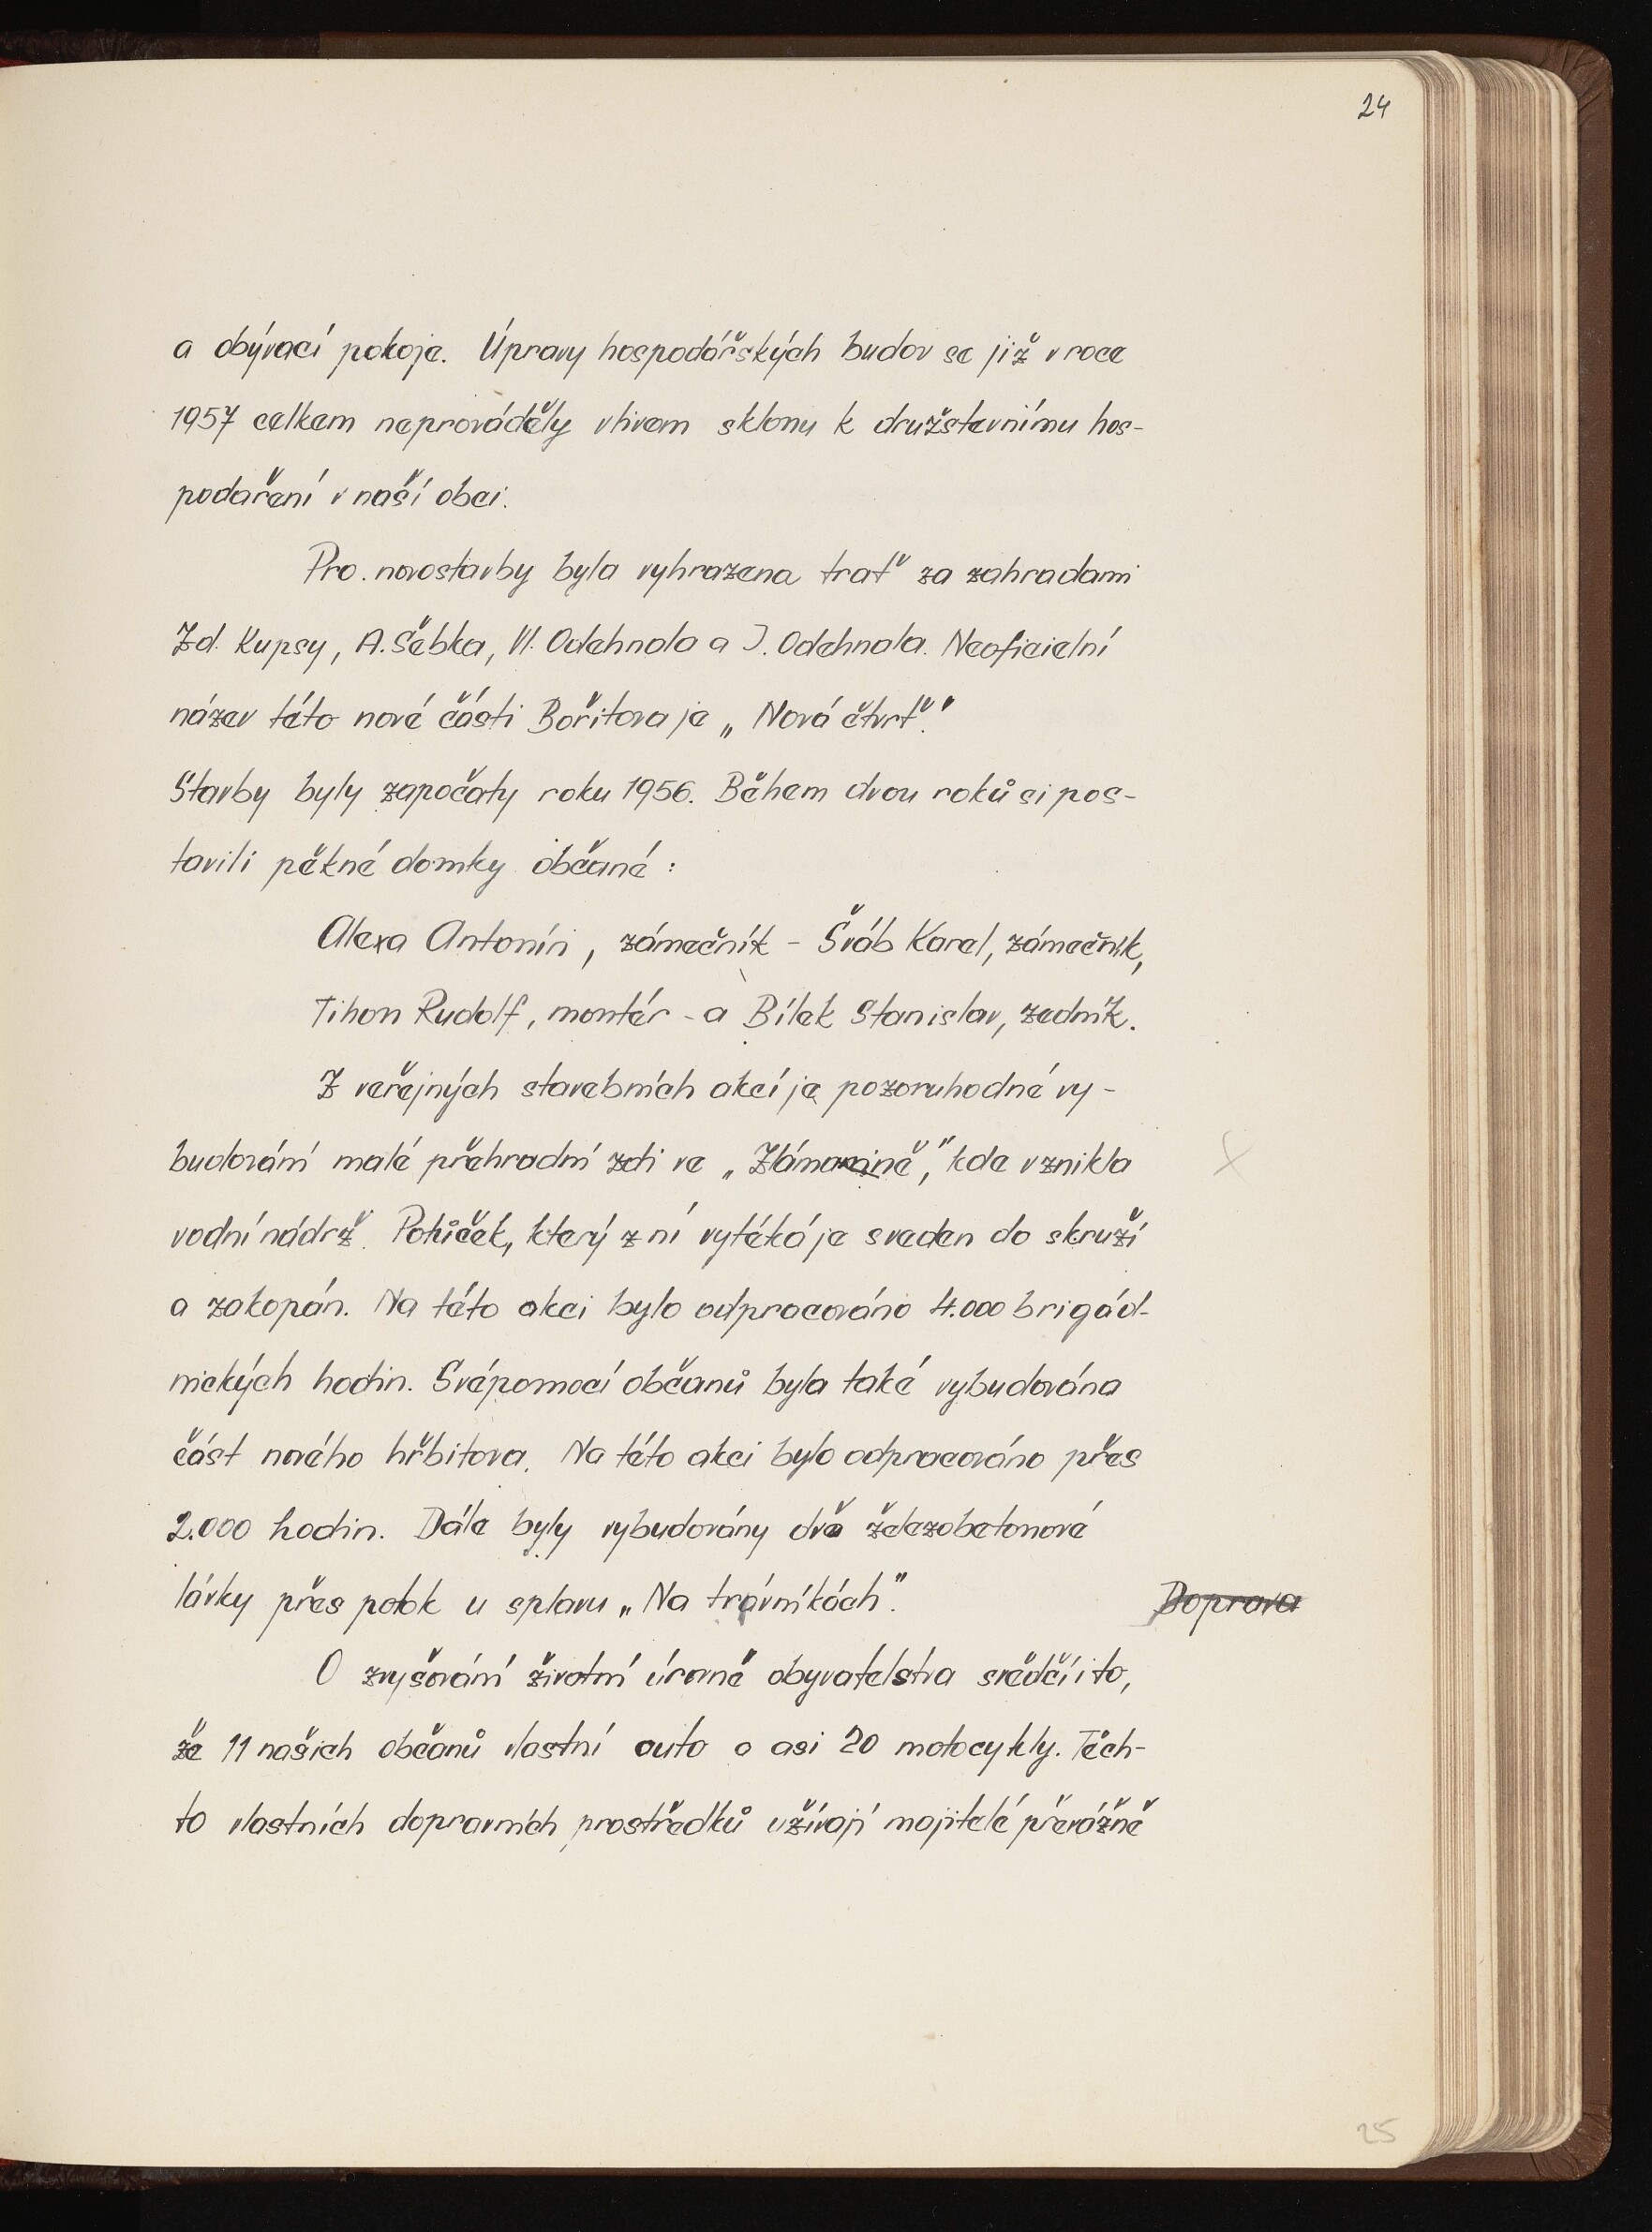 24
a obývací pokoje. Úpravy hospodářských budov se již v roce
1957 celkem neprováděly vlivem sklonu k družstevnímu hos-
podaření v naší obci.
Pro novostavby byla vyhrazena trať za zahradami
Zd. Kupsy, A. Šebka, Vl. Odehnala a J. Odehnala. Neoficielní
název této nové části Bořitova je „Nová čtvrť."
Stavby byly započaty roku 1956. Během dvou roků si pos-
tavili pěkné domky občané :
Alexa Antonín, zámečník - Šváb Karel, zámečník,
Tihon Rudolf, montér - a Bílek Stanislav, zedník.
Z veřejných stavebních akcí je pozoruhodné vy-
budování malé přehradní zdi ve „ , " kde vznikla
vodní nádrž. Potůček, který z ní vytéká je sveden do skruží
a zakopán. Na této akci bylo odpracováno 4.000 brigád-
nických hodin. Svépomocí občanů byla také vybudována
část nového hřbitova. Na této akci bylo odpracováno přes
2.000 hodin. Dále byly vybudovány dvě železobetonové
lávky přes potok u splavu „Na trávníkách".
Doprava
O zvyšování životní úrovně obyvatelstva svědčí i to,
že 11 našich občanů vlastní auto a asi 20 motocykly. Těch-
to vlastních dopravních prostředků užívají majitelé převážně
25